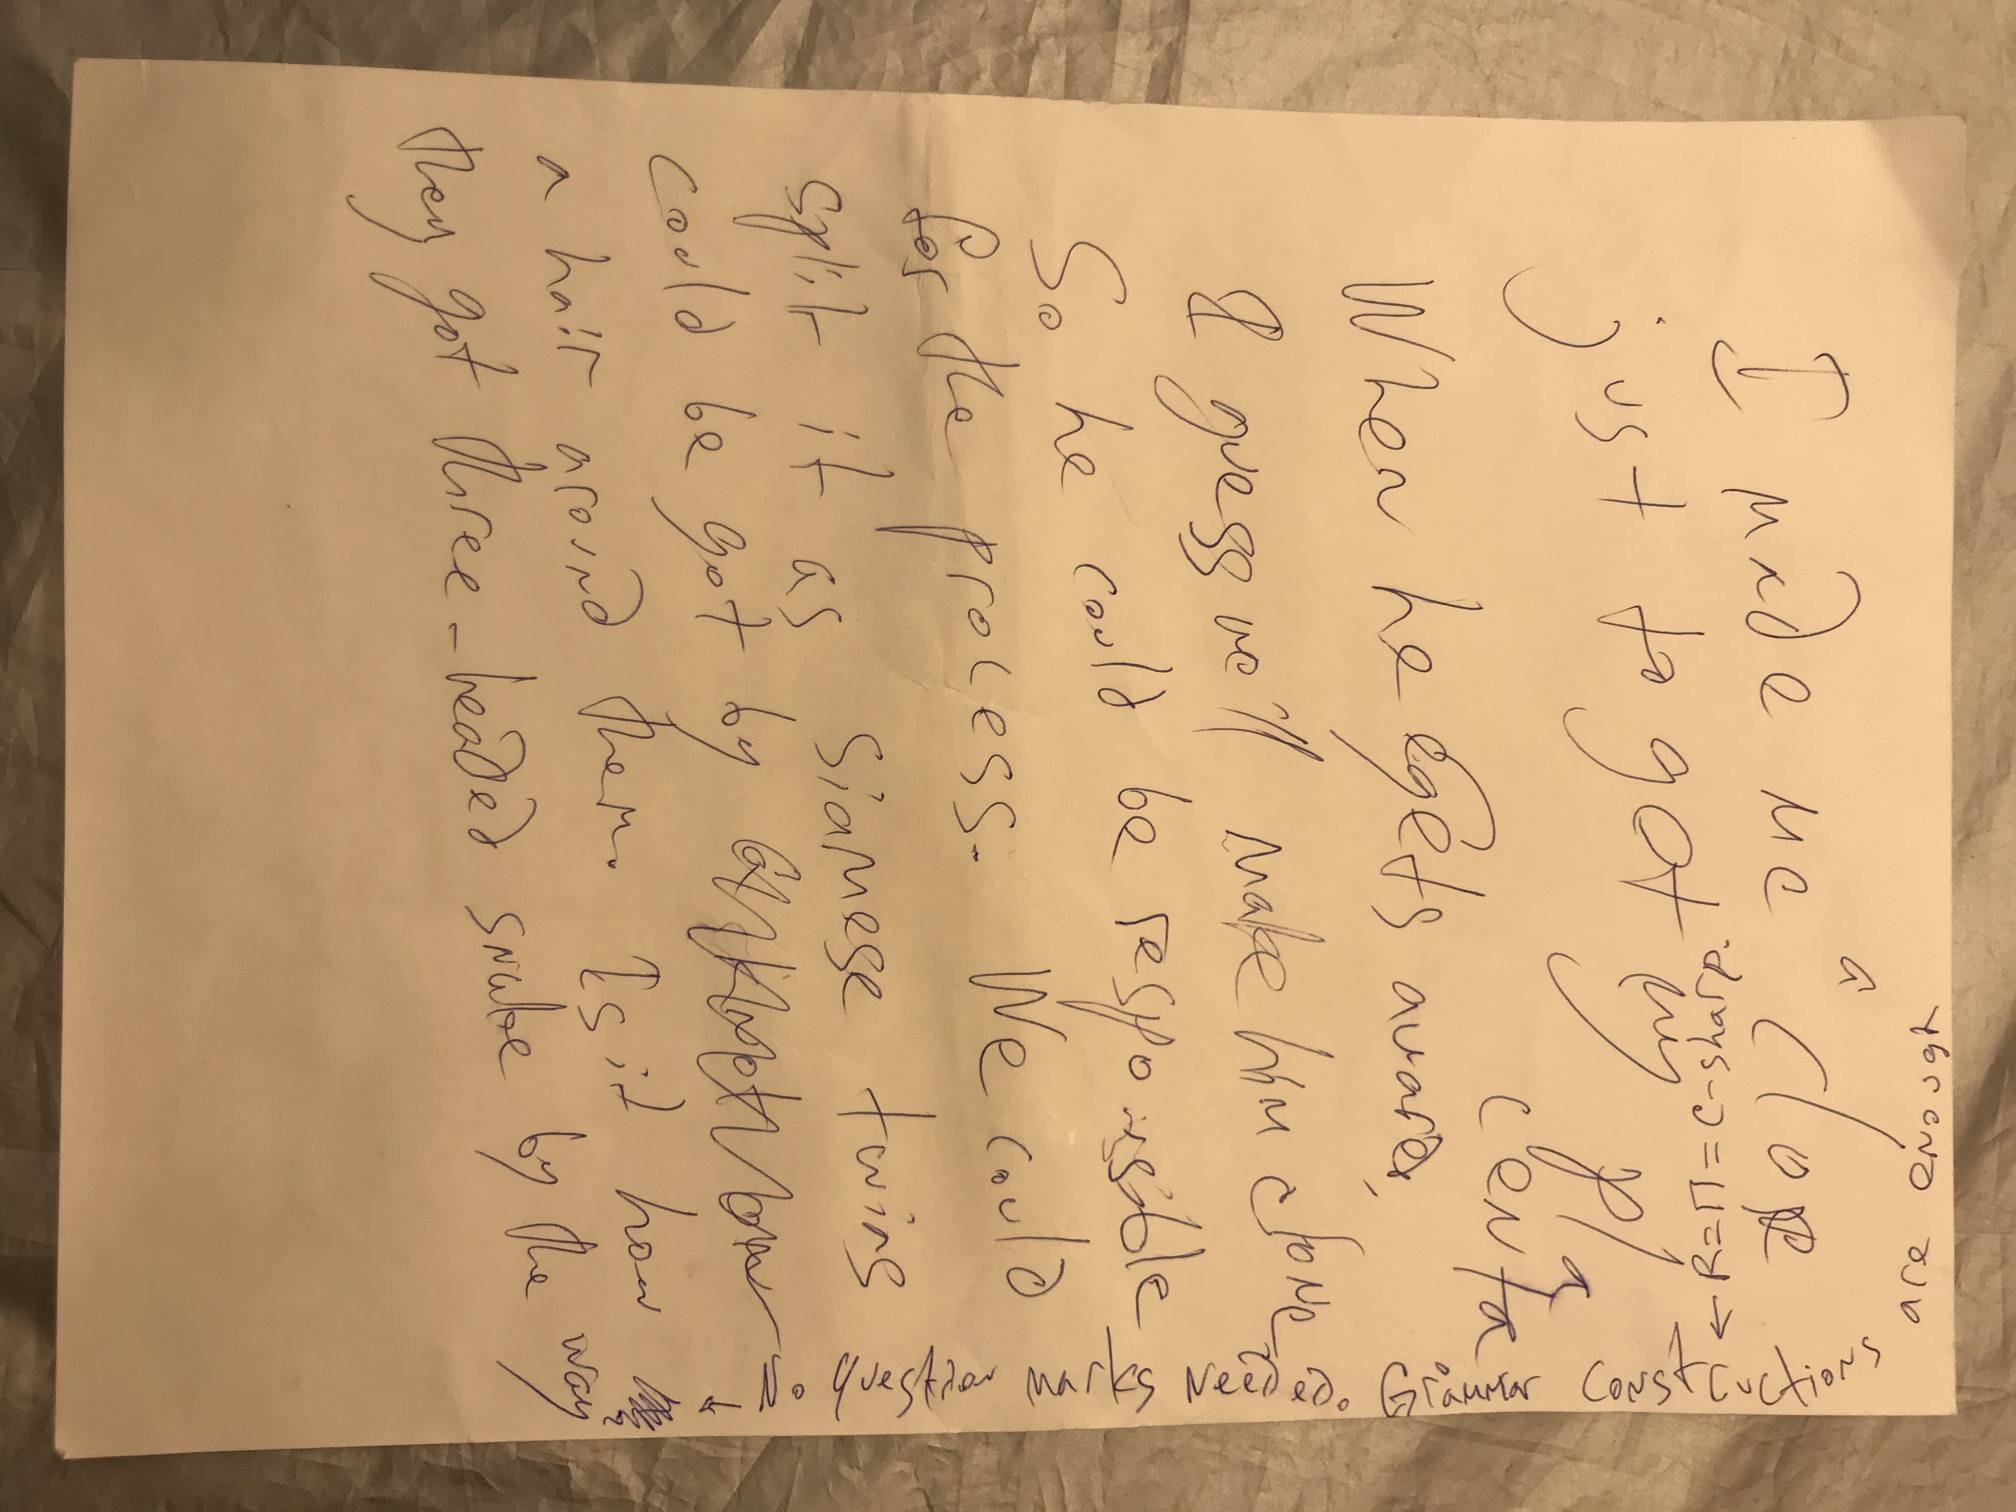 I made me a clo
just to got my cpla
When he egets aware, centa
I guess we'll make him clone
So he could be resposible
for the process. We could
split it as siamese twins
could be got by
a hair around them. Is it how
they got three-headed snake by the way
No question marks needed. Grammar constructions
are enough
R=П=c-sharp.